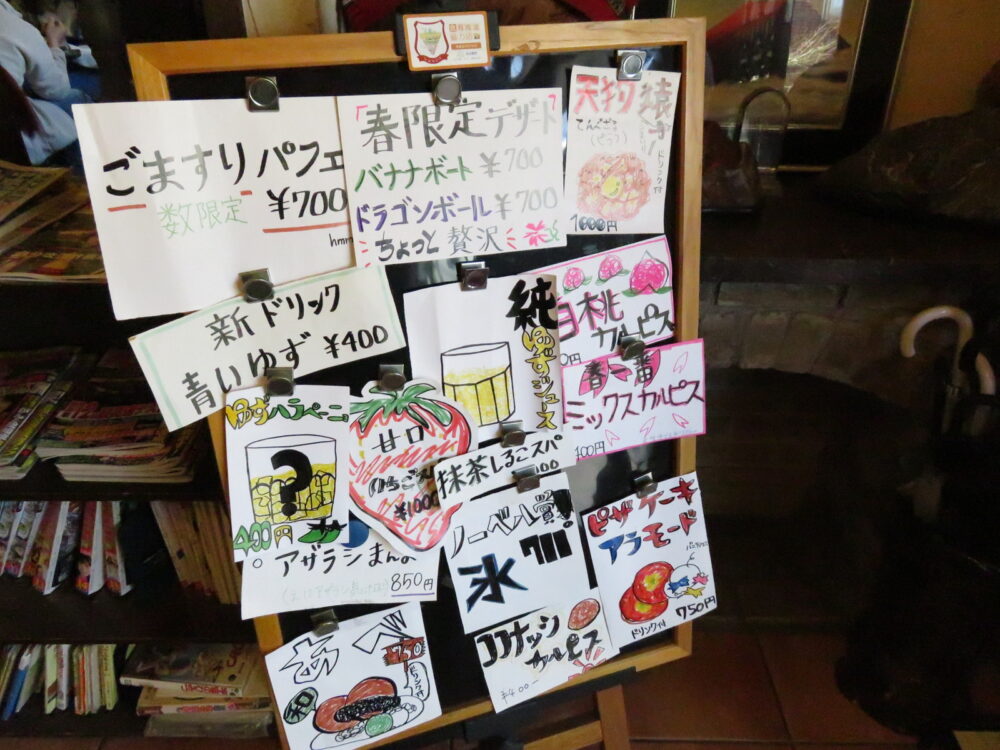 ごますりパフェ
数限定
¥700
「春限定デザート
バナナボート ¥700
ドラゴンボール ¥700
ちょっと贅沢
天狗
ドリンク付
1000円
新ドリンク
青いゆず ¥400
純
ゆずジュース
白桃
カルピス
春一番
ミックスカルピス
400円
ゆずハラペーニョ
?
400円
甘口
いちごスパ
¥1000
抹茶しるこスパ
アザラシまんま
850円
ノーベル賞!
氷
ピザケーキ
アラーモード
750円
ドリンク付
ココナッツ
カルピス
¥400-
和
750
ドリンク付